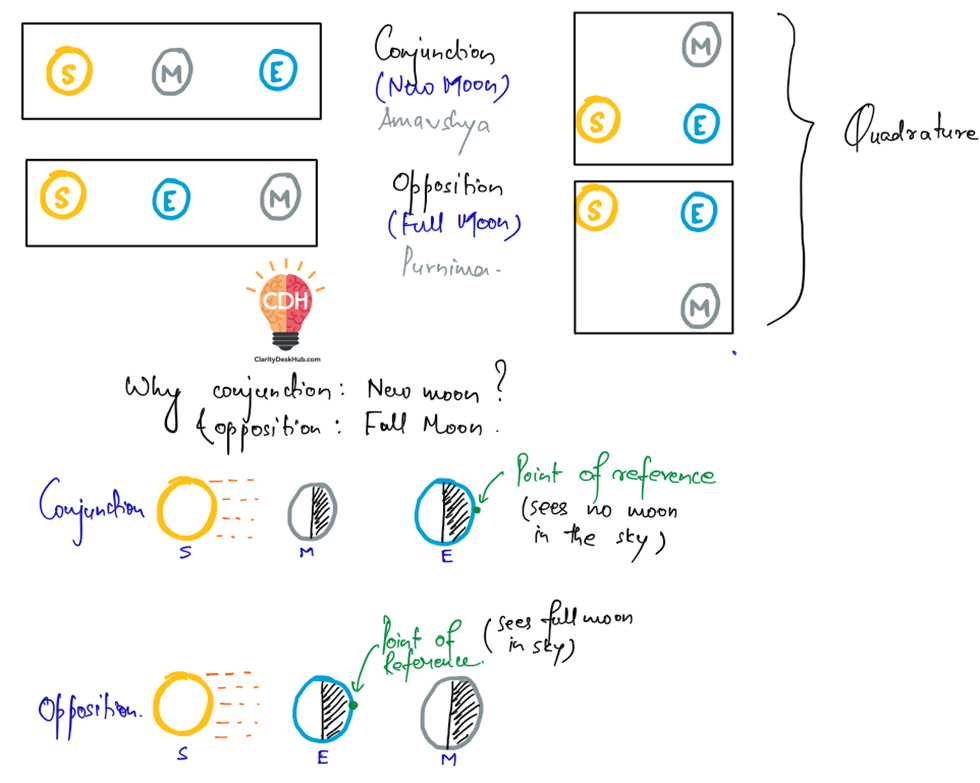 S M E
Conjunction
(New Moon)
Amavshya
S E M
Opposition
(Full Moon)
Purnima.
M
S E
S E
M
Quadrature
CDH
ClarityDeskHub.com
Why conjunction: New moon ?
& opposition: Full Moon.
Conjunction
S M E
Point of reference
(sees no moon
in the sky)
Opposition.
S E M
Point of
Reference.
(sees full moon
in sky)